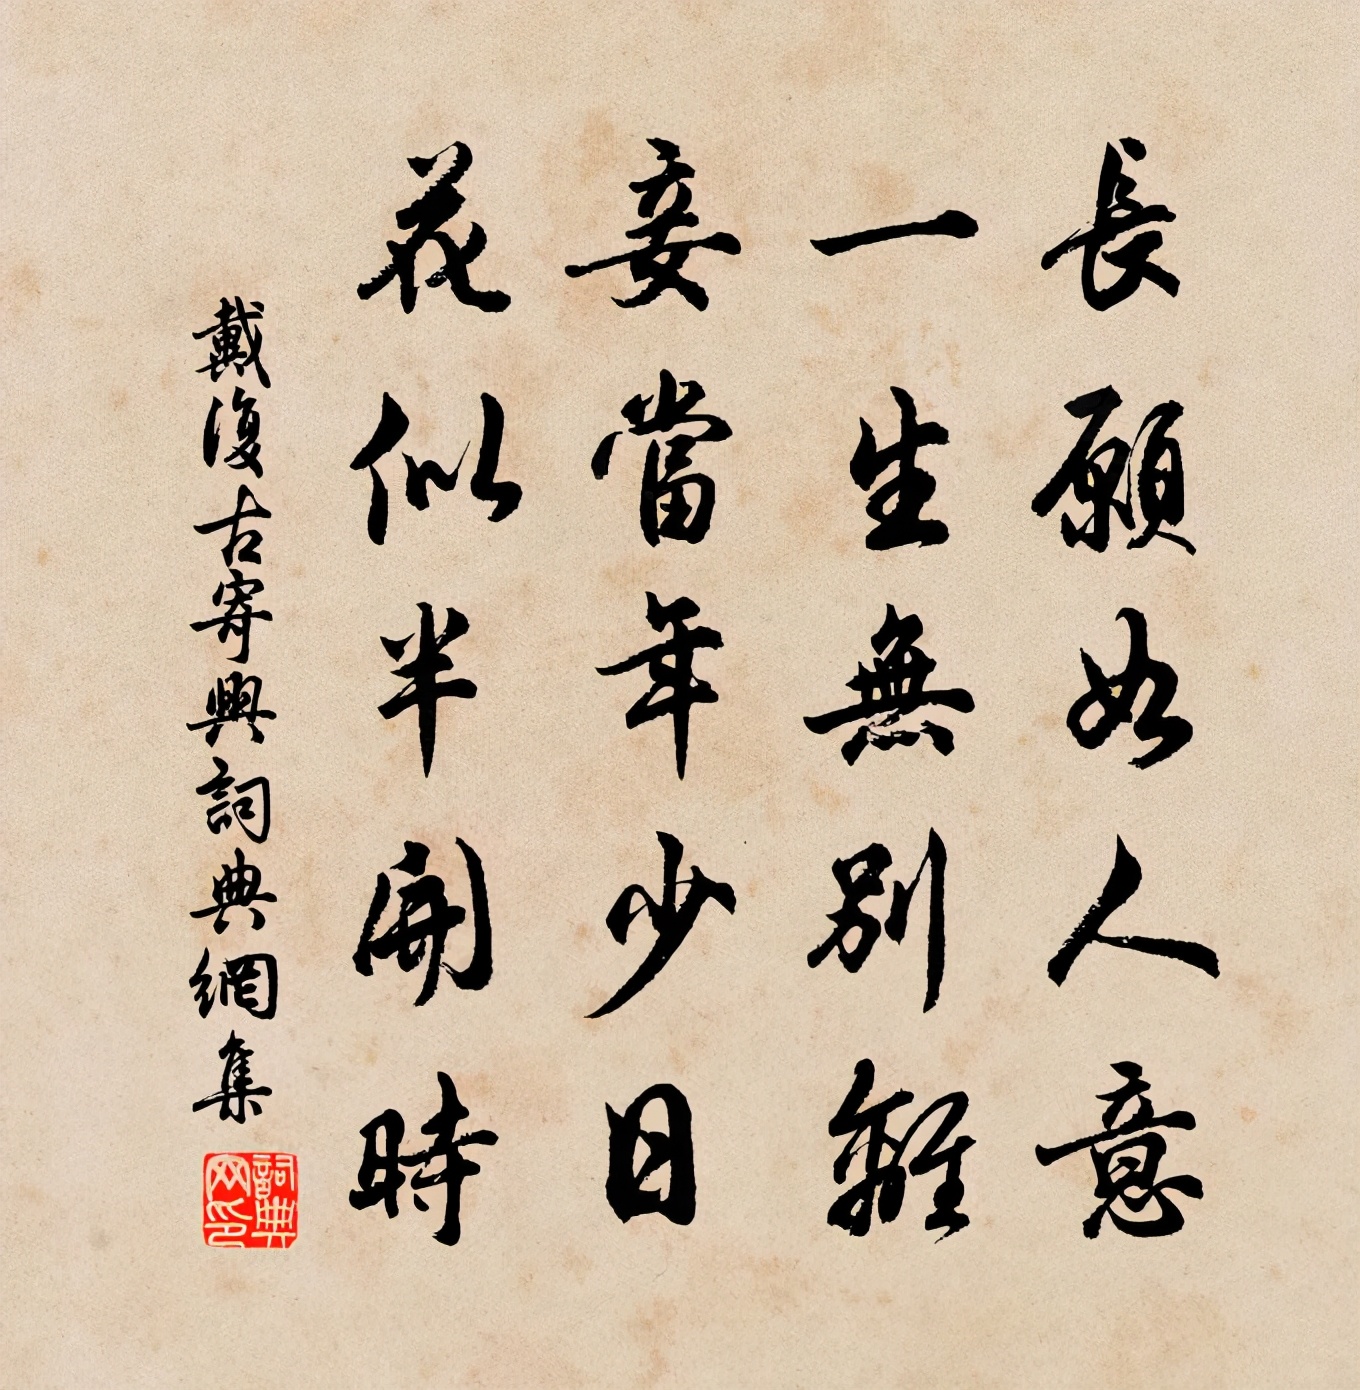 長願如人意
一生無別離
妾當年少日
花似半開時
戴復古寄興詞典網集
詞典
网印